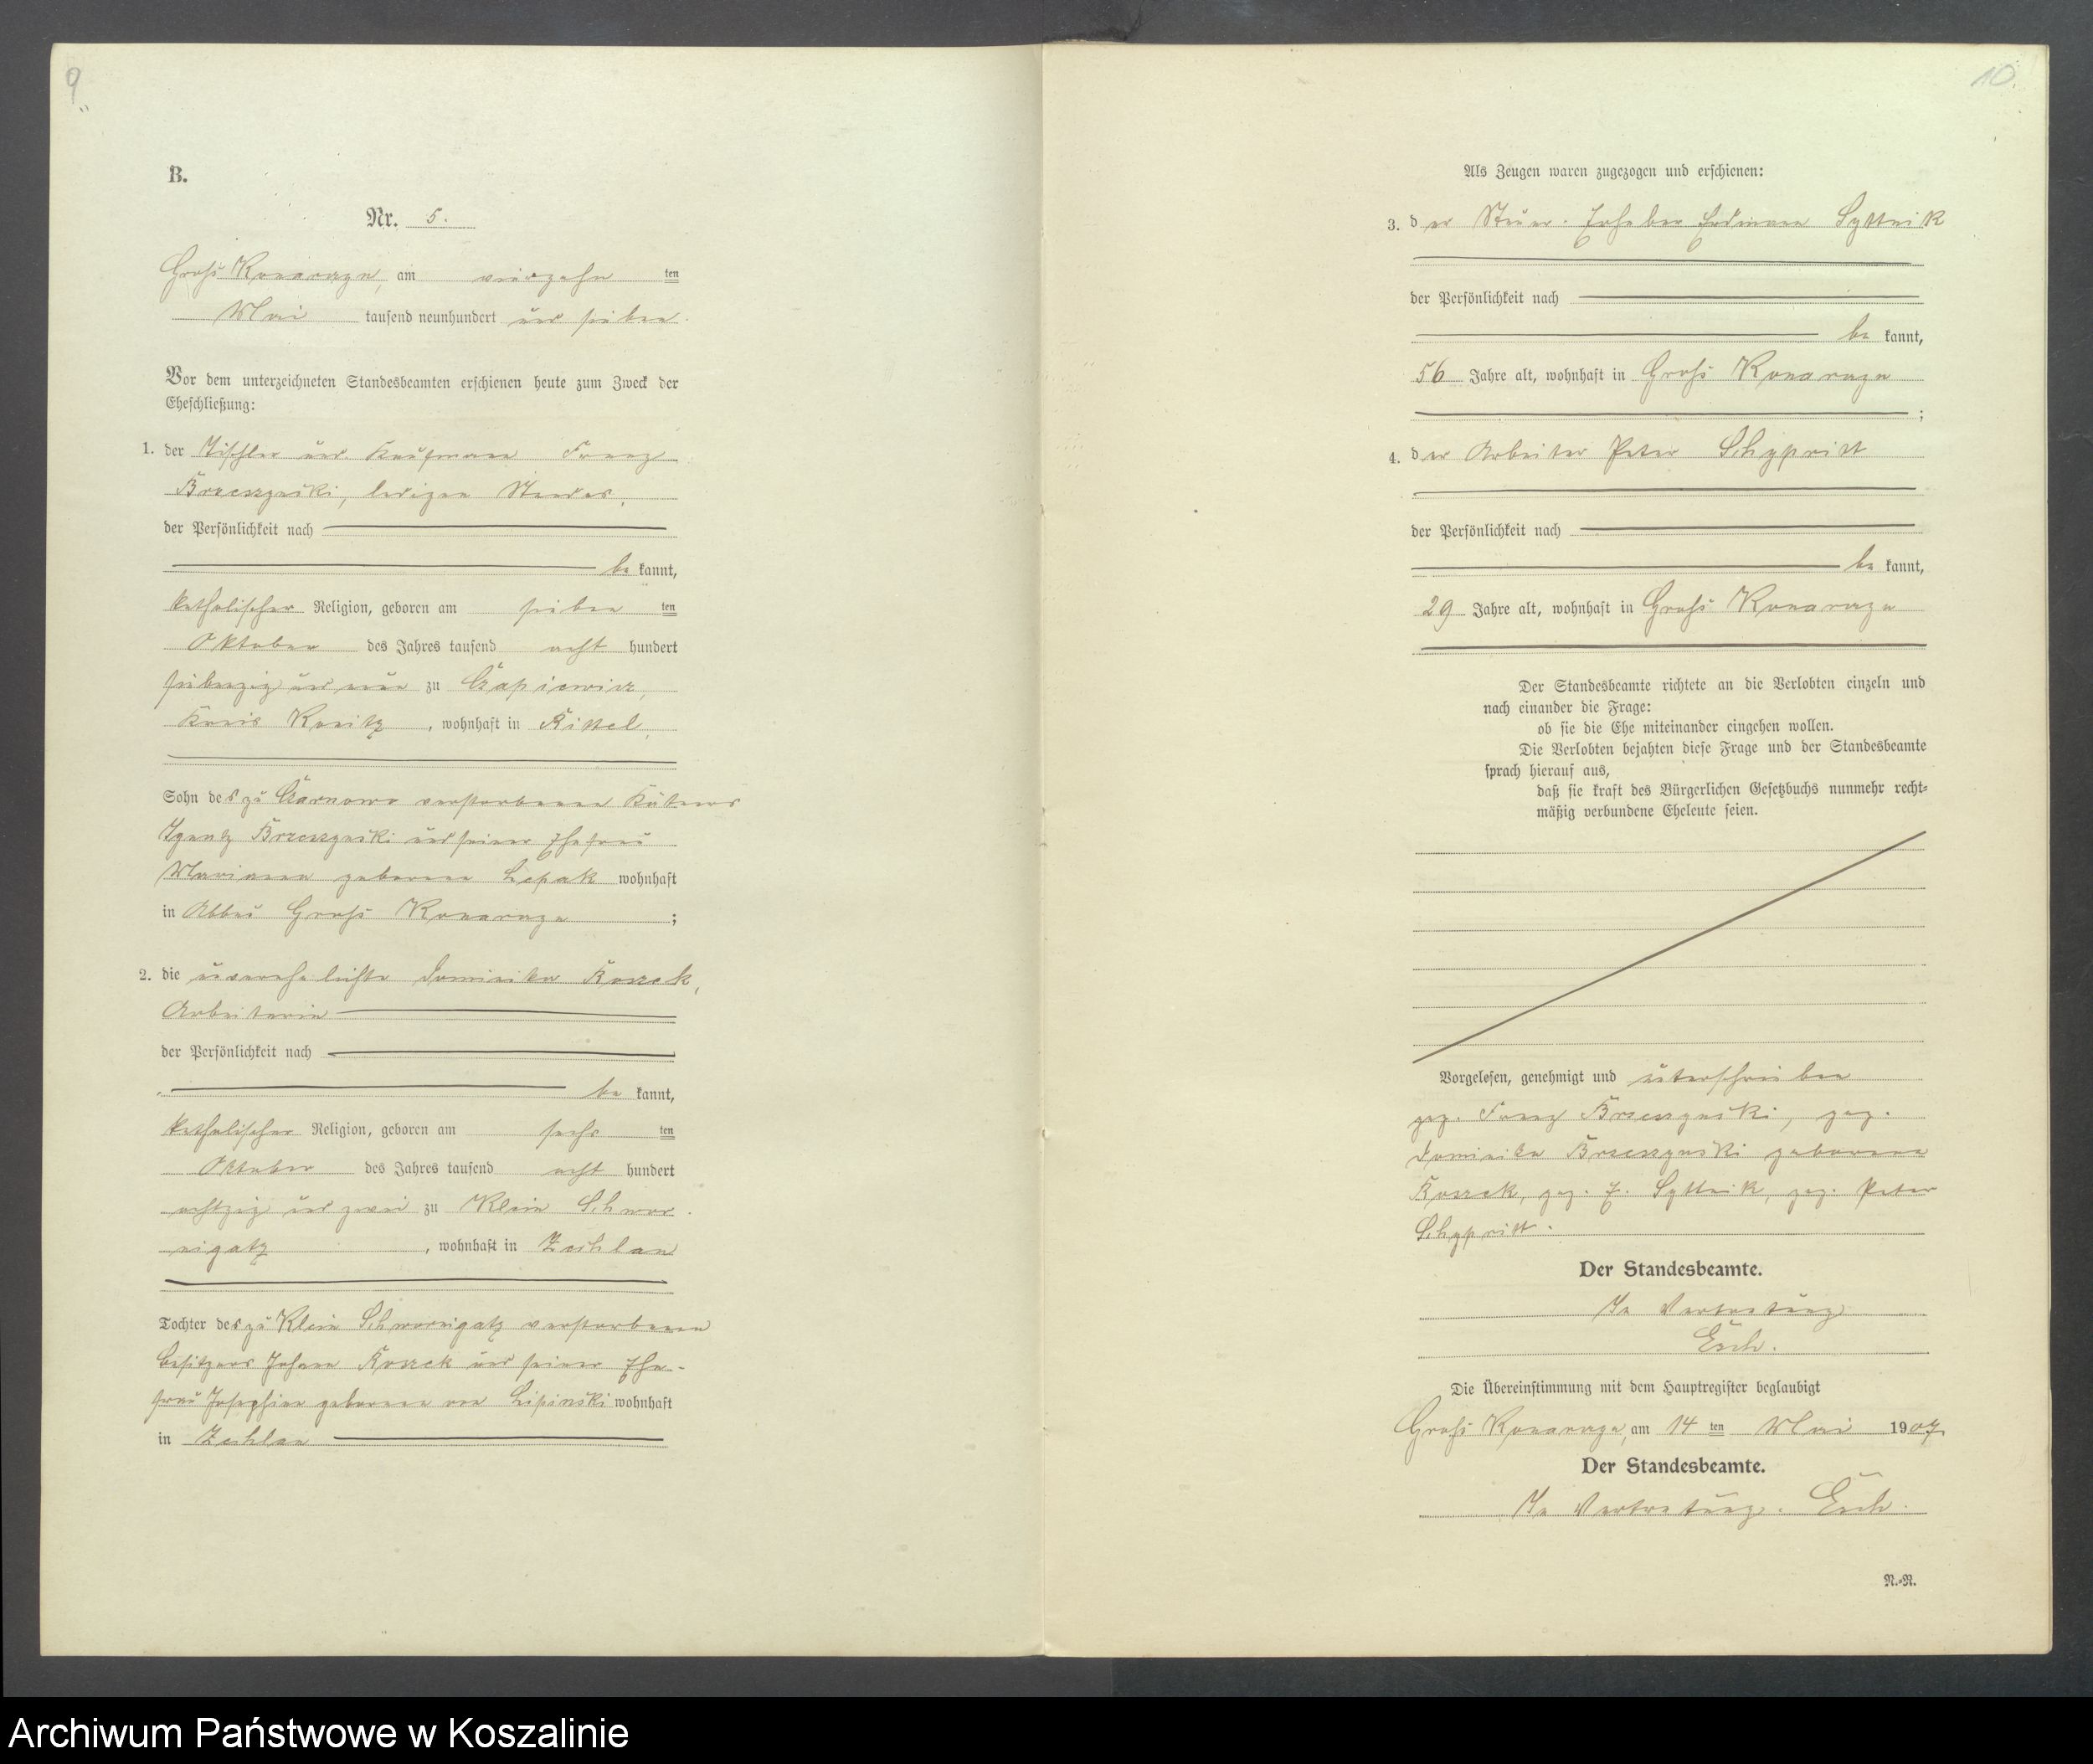 9
B.
Nr. 5.
Groß Konarczyn, am vierzehn ten
Mai tausend neunhundert und sieben.
Vor dem unterzeichneten Standesbeamten erschienen heute zum Zweck der
Eheschließung:
1. der Tischler und Kaufmann Franz
ledigen Standes,
der Persönlichkeit nach
be kannt,
katholischer Religion, geboren am sieben ten
Oktober des Jahres tausend acht hundert
siebenzig und neun zu
Kreis Konitz, wohnhaft in Rittel,
Sohn des zu verstorbenen Käthners
und seiner Ehefrau
Marianna geborene Lepak wohnhaft
in Abbau Groß Konarczyn;
2. die unverehelichte Dominika
Arbeiterin
der Persönlichkeit nach
be kannt,
katholischer Religion, geboren am sechs ten
Oktober des Jahres tausend acht hundert
achtzig und zwei zu Klein Schwor
nigatz, wohnhaft in Zechlau
Tochter des zu Klein Schwornigatz verstorbenen
Besitzers Johann und seiner Ehe-
frau Josephine geborene von Lipinski wohnhaft
in Zechlau
10.
Als Zeugen waren zugezogen und erschienen:
3. der Steuer-Erheber Erdmann Syttnik
der Persönlichkeit nach
be kannt,
56 Jahre alt, wohnhaft in Groß Konarczyn
;
4. der Arbeiter Peter
der Persönlichkeit nach
be kannt,
29 Jahre alt, wohnhaft in Groß Konarczyn
Der Standesbeamte richtete an die Verlobten einzeln und
nach einander die Frage:
ob sie die Ehe miteinander eingehen wollen.
Die Verlobten bejahten diese Frage und der Standesbeamte
sprach hierauf aus,
daß sie kraft des Bürgerlichen Gesetzbuchs nunmehr recht-
mäßig verbundene Eheleute seien.
Vorgelesen, genehmigt und unterschrieben
gez. Franz gez.
Dominika geborene
gez. E. Syttnik, gez. Peter
Der Standesbeamte.
In Vertretung
Esch.
Die Übereinstimmung mit dem Hauptregister beglaubigt
Groß Konarczyn, am 14 ten Mai 1907.
Der Standesbeamte.
In Vertretung. Esch.
N.-R.
Archiwum Państwowe w Koszalinie